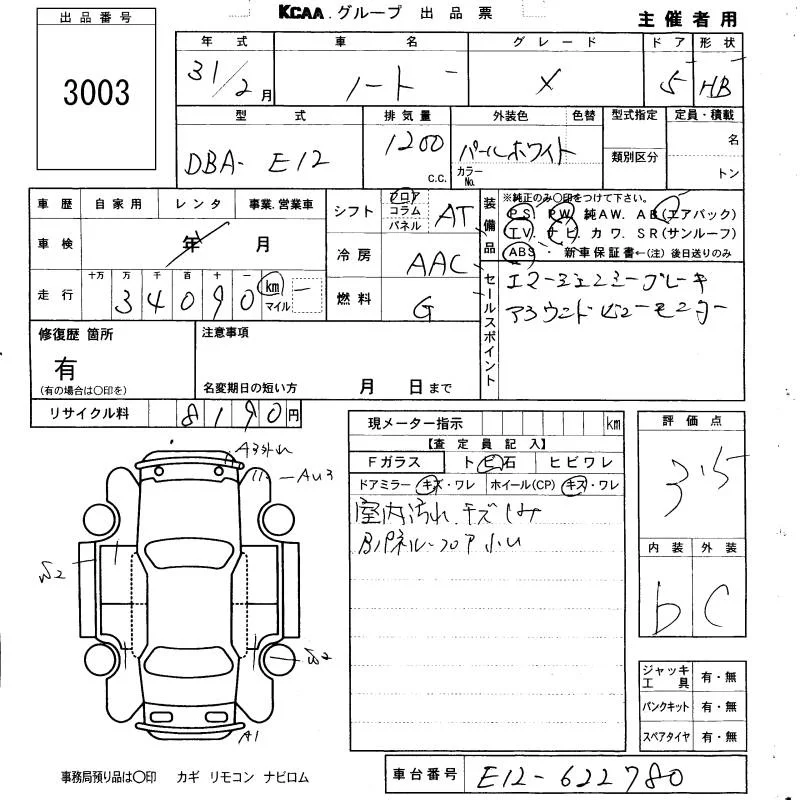 出品番号
3003
KCAA.グループ 出品票
主催者用
年式 車名 グレード ドア 形状
31/2月 ノート X 5 HB
型式 排気量 外装色 色替 型式指定 定員・積載
DBA- E12 1200 c.c. パールホワイト カラーNo. 類別区分 名 トン
車歴 自家用 レンタ 事業.営業車
車検 年 月
走行 十万 万 千 百 十 一
34090 km マイル
シフト フロア コラム パネル AT
冷房 AAC
燃料 G
装備品 ※純正のみ〇印をつけて下さい。
PS PW 純AW. AB(エアバック)
TV. ナビ. カワ. SR(サンルーフ)
ABS. 新車保証書←(注)後日送りのみ
セールスポイント
エマージェンシーブレーキ
アラウンドビューモニター
修復歴 箇所
有
(有の場合は〇印を)
注意事項
名変期日の短い方 月 日まで
リサイクル料 8190円
現メーター指示 km
【査定員記入】
Fガラス ト ビ 石 ヒビワレ
ドアミラー キズ・ワレ ホイール(CP) キズ・ワレ
室内汚れ.キズ
Bパネル-フロア
評価点
3.5
内装 外装
b C
A3
AU3
W2
W2
A1
ジャッキ工具 有・無
パンクキット 有・無
スペアタイヤ 有・無
事務局預り品は〇印 カギ リモコン ナビロム
車台番号 E12-622780